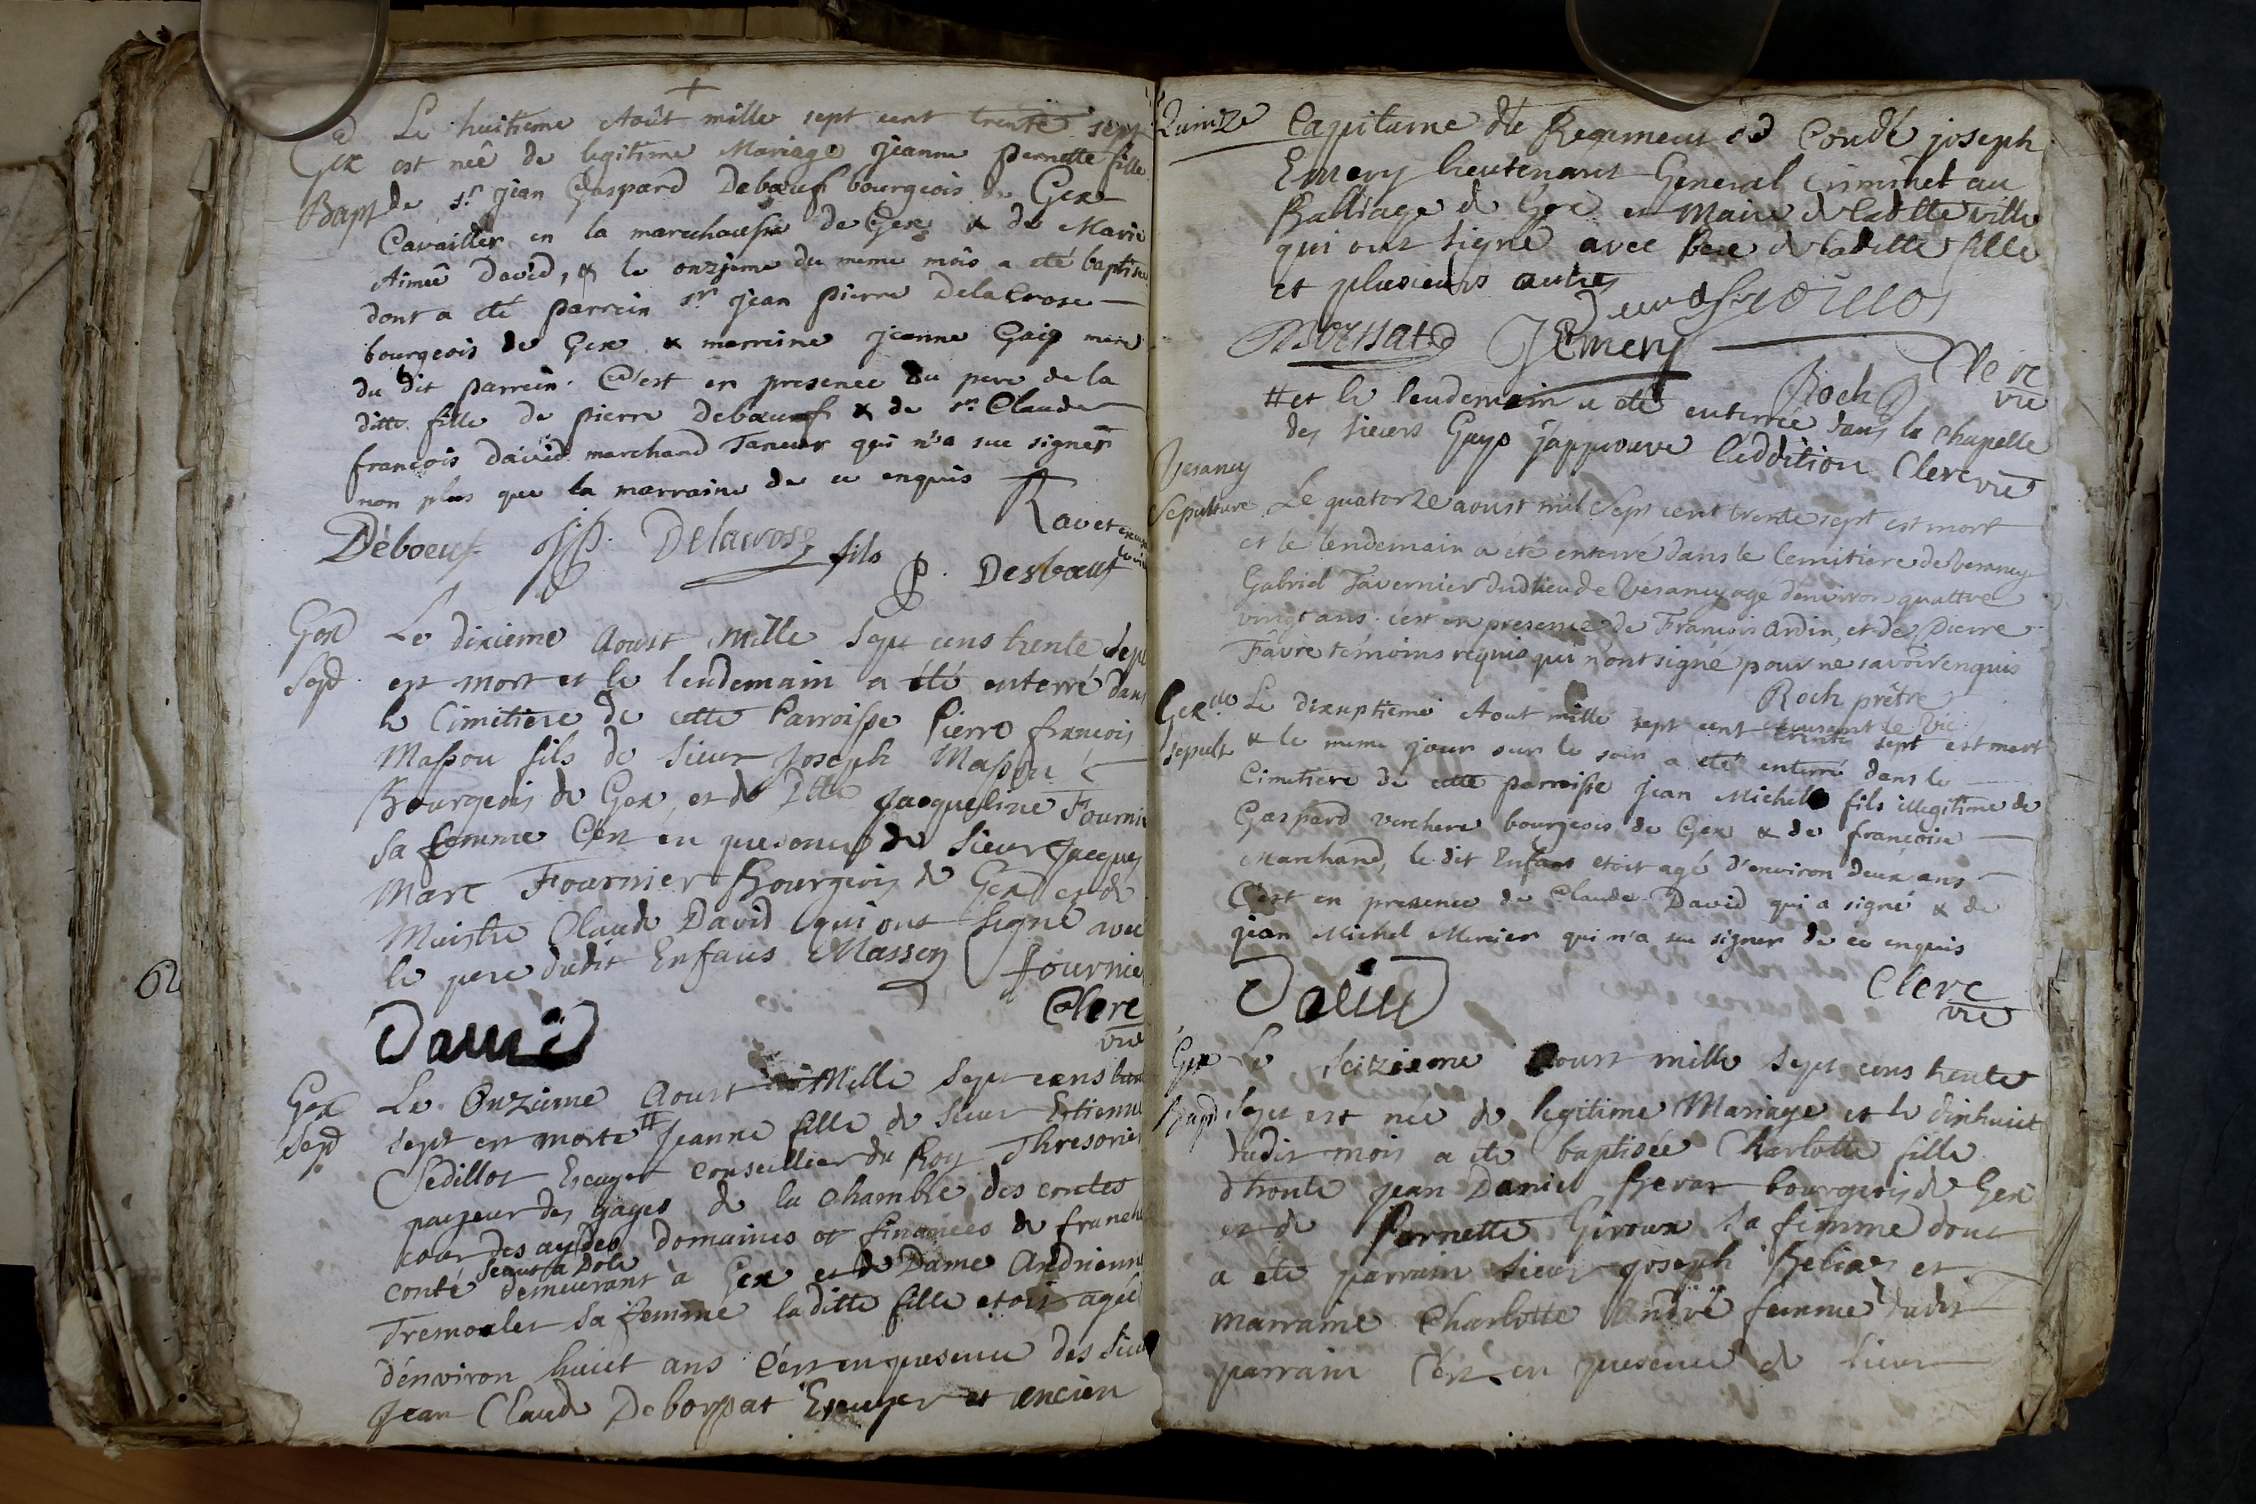 +
Gex
Bapt
Le huitieme Août mille sept cent trente sept
est neê de legitime Mariage jeanne pernette fille
de sr. jean Gaspard Debœuf bourgeois de Gex
Cavailler en la marechaussée de Gex & de Marie
Aimeê David, & le onzieme du meme mois a eté baptisée
dont a été parrein sr. jean pierre Delacrose
bourgeois de Gex & marreine jeanne Gaip mere
du dit parrein. C'est en presence du pere de la
ditte fille de pierre Debœuf & de sr. Claude
francois David marchand Taneur qui n'a sue signer
non plus que la marraine de ce enquis
Ravet
Déboeuf JP. Delacrose fils P. Desbœuf
Gex
Sep
Le dixieme Aoust Mille Sept cens trente Sept
est mort et le lendemain a été enterré dans
le Cimitiere de cette Parroisse Pierre françois
Masson fils de sieur Joseph Masson
Bourgeois de Gex, et de Dlle Jacqueline Fournier
Sa femme C'est en presence de Sieur Jacques
Marc Fournier Bourgeois de Gex et de
Maistre Claude David qui ont Signé avec
le pere dudit Enfans Masson fournier
Clerc
vic
David
62
Gex
Sep
Le Onzieme Aoust Mille Sept cens trente
sept est morte # Jeanne fille de Sieur Estienne
Sedillot Ecuyer Conseiller du Roy Thresorier
payeur des gages de la Chambre des contes
cour des aydes Domaines et finances de franche
conté seant à Dole demeurant à Gex et de Dame Andrienne
Tremoulet Sa femme laditte fille etoit agée
d'énviron huict ans C'est en presence des Sieurs
Jean Claude Deborssat Ecuyer et ancien
Quinze
Capitaine de Regiment de Condé joseph
Emery lieutenant General Criminel au
Balliage de Gex et Maire de laditte ville
qui ont signé avec pere de laditte fille
et plusieurs autres
Borssat JEmery
Roch Clerc
vic
# et le lendemain a été enterrée dans la chapelle
des sieurs Guyo j'approuve l'addition Clerc vic
Vesancy
Sepulture
Le quatorze aoust mil Sept cent trente sept est mort
et le lendemain a été enterré dans le Cemitiere de vesancy
Gabriel Tavernier dudlieu de Vesancy agé denviron quattre
vingt ans. c'est en presence de François Ardin, et de Pierre
Favre témoins requis qui n'ont signé pour ne savoir enquis
Roch prêtre
Gex
sepult
Le dixseptieme Aout mille sept cent trente sept est mort
& le meme jour sur le soir a eté enterré dans le
Cimetiere de cette parroisse jean Michel fils illegitime de
Gaspard verchere bourgeois de Gex & de françoise
Marchand, le dit Enfant etoit agé d'environ deux ans
C'est en presence de Claude David qui a signé & de
jean Michel Mercier qui n'a seu signer de ce enquis
David
Clerc
vic
Gex
Bapt
Le seizieme Aoust mille sept cens trente
Sept est née de legitime Mariage et le dixhuict
dudit mois a été baptisée Charlotte fille
d'honte jean Daniel Berar bourgeois de Gex
et de Pernette Giroux sa femme dont
a été parrain sieur joseph Beliar et
marraine Charlotte André femme dudit
parrain C'est en presence de sieur